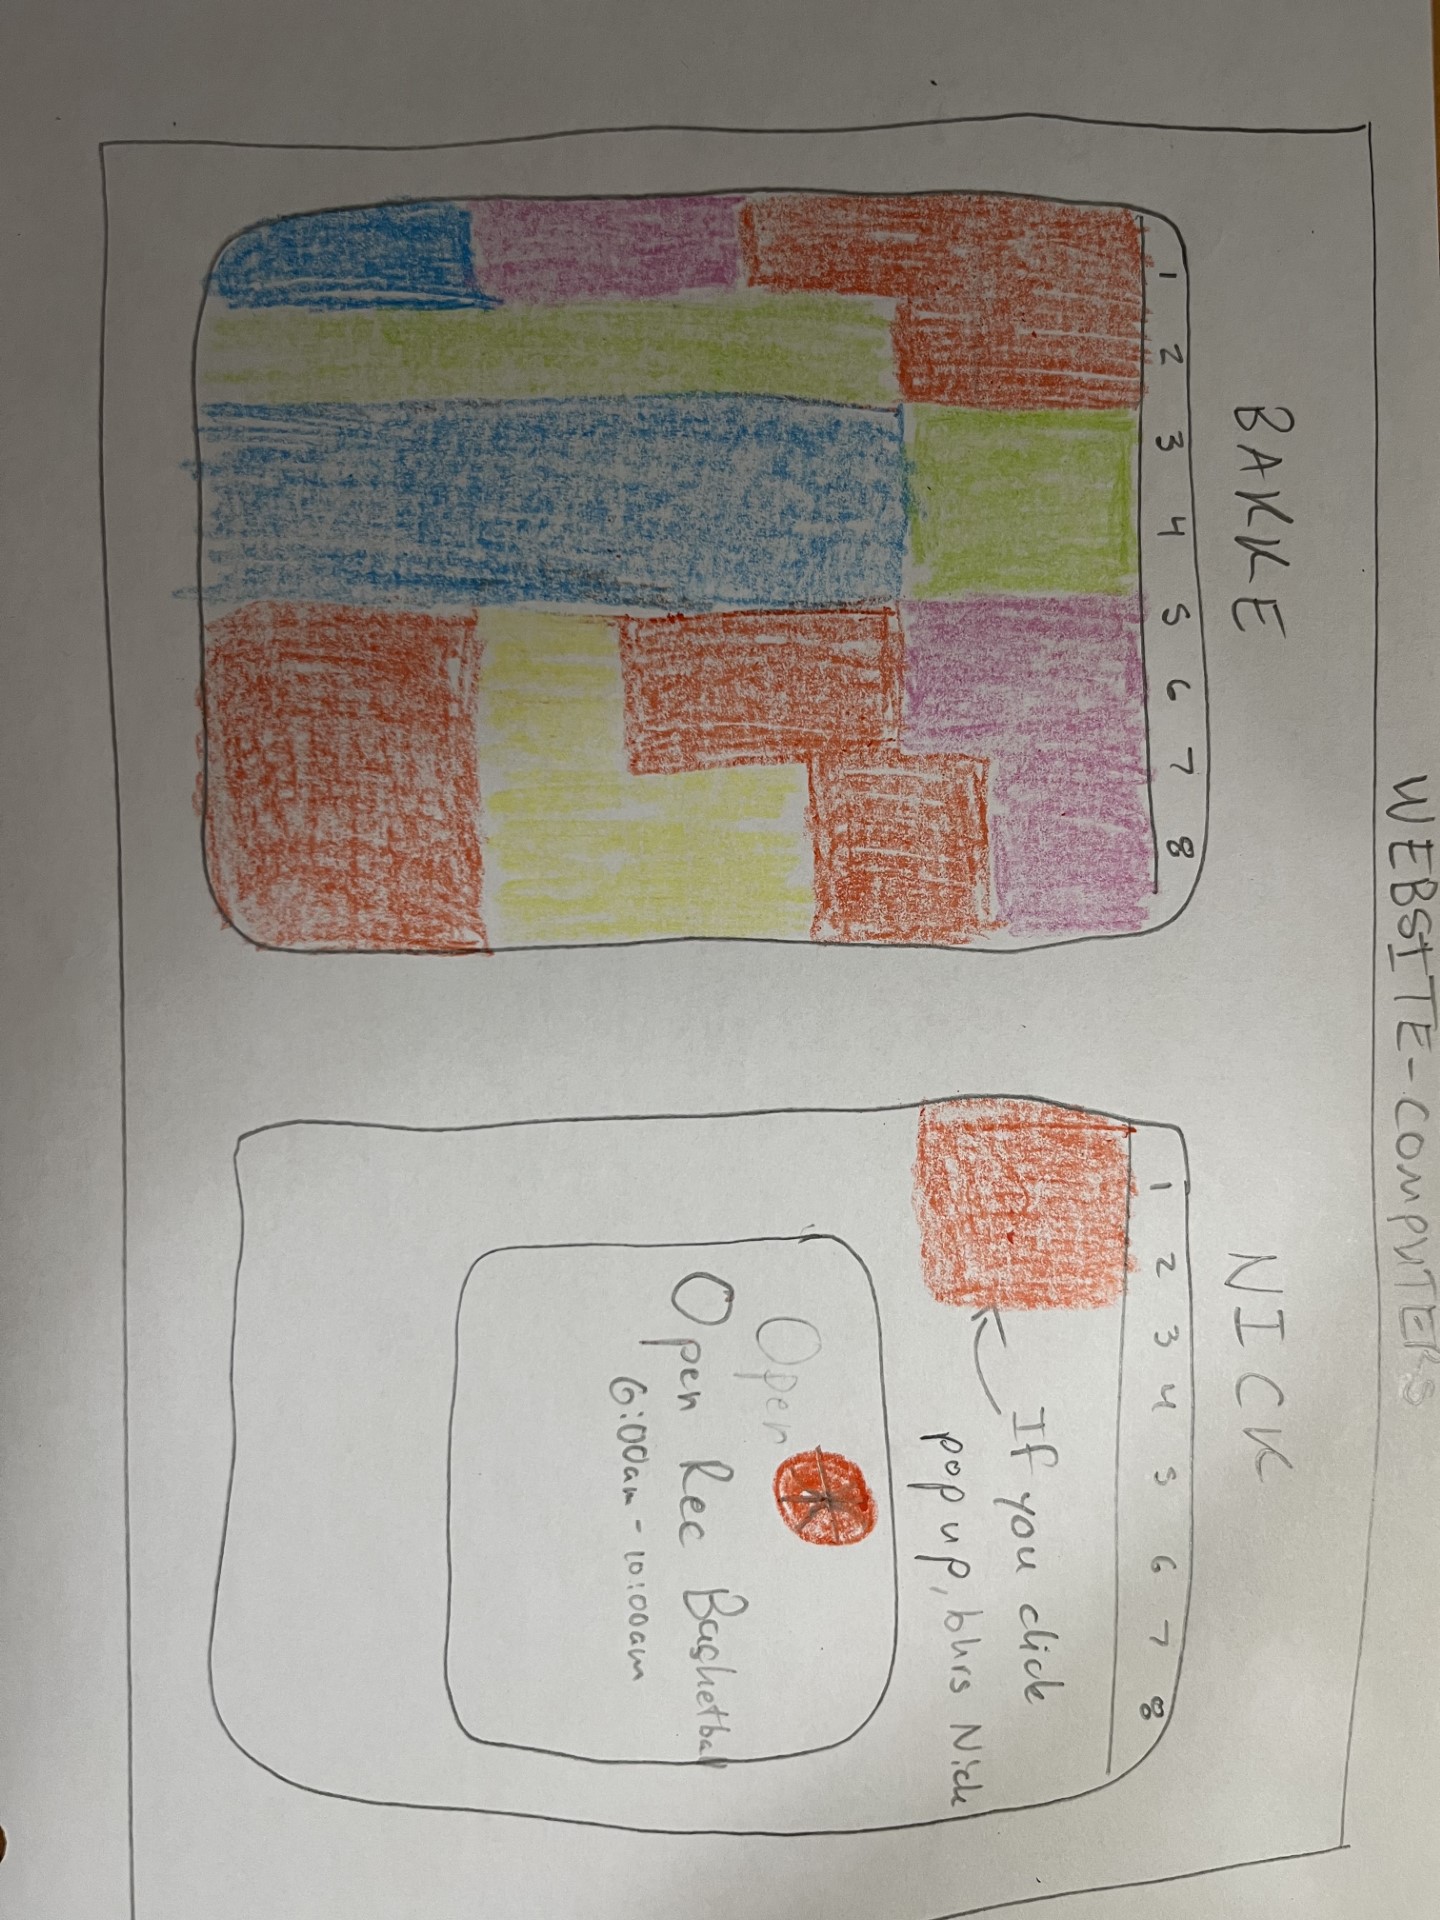 WEBSITE-COMPUTERS
BAKKE
1 2 3 4 5 6 7 8
NICK
1 2 3 4 5 6 7 8
If you click
pop up, blurs Nick
Open
Open Rec Basketball
6:00am - 10:00am